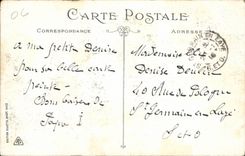 CARTE POSTALE
CORRESPONDANCE
ADRESSE
a ma petite Denise
pour sa belle carte
peinte
Bons baisers de
Papa
Mademoiselle
Denise
40 Rue de Pologne
St Germain en Laye
S et O